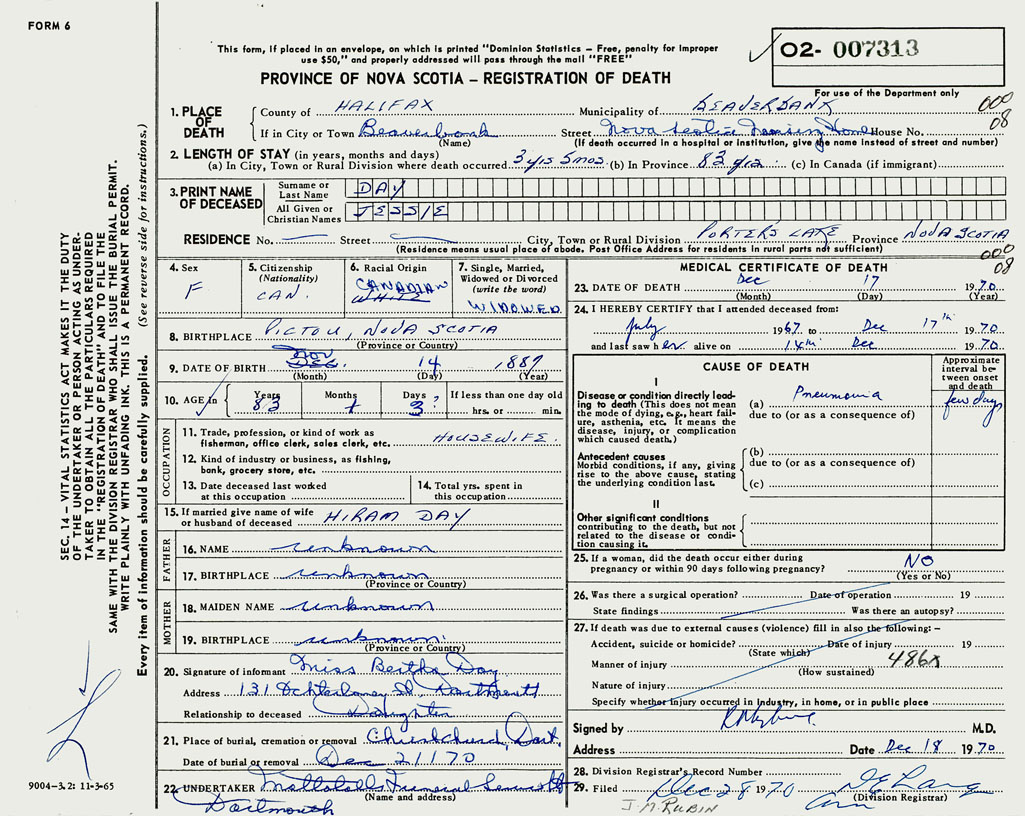 FORM 6
This form, if placed in an envelope, on which is printed "Dominion Statistics – Free, penalty for improper
use $50," and properly addressed will pass through the mail "FREE"
PROVINCE OF NOVA SCOTIA – REGISTRATION OF DEATH
O2- 007313
For use of the Department only
000
08
1. PLACE OF DEATH
County of HALIFAX Municipality of BEAVERBANK
If in City or Town Beaverbank Street Nova Scotia Nursing Home House No.
(Name) (If death occurred in a hospital or institution, give the name instead of street and number)
2. LENGTH OF STAY (in years, months and days)
(a) In City, Town or Rural Division where death occurred 3 yrs 5 mos (b) In Province 83 yrs. (c) In Canada (if immigrant)
3. PRINT NAME OF DECEASED
Surname or Last Name DAY
All Given or Christian Names JESSIE
RESIDENCE No. Street City, Town or Rural Division PORTERS LAKE Province NOVA SCOTIA
(Residence means usual place of abode. Post Office Address for residents in rural parts not sufficient)
000
08
4. Sex F
5. Citizenship (Nationality) CAN.
6. Racial Origin CANADIAN WHITE
7. Single, Married, Widowed or Divorced (write the word) WIDOWED
8. BIRTHPLACE PICTOU, NOVA SCOTIA
(Province or Country)
9. DATE OF BIRTH Nov DEC. 14 1887
(Month) (Day) (Year)
10. AGE in Years 83 Months 1 Days 3? If less than one day old
hrs. or min.
OCCUPATION
11. Trade, profession, or kind of work as fisherman, office clerk, sales clerk, etc. HOUSEWIFE.
12. Kind of industry or business, as fishing, bank, grocery store, etc.
13. Date deceased last worked at this occupation
14. Total yrs. spent in this occupation
15. If married give name of wife or husband of deceased HIRAM DAY
FATHER
16. NAME unknown
17. BIRTHPLACE unknown
(Province or Country)
MOTHER
18. MAIDEN NAME unknown
19. BIRTHPLACE unknown.
(Province or Country)
20. Signature of informant Miss Bertha Day
Address 131 Ochterloney St. Dartmouth
Relationship to deceased Daughter
21. Place of burial, cremation or removal Christchurch, Dart.
Date of burial or removal Dec 21 1 70
22. UNDERTAKER Funeral
(Name and address)
Dartmouth
MEDICAL CERTIFICATE OF DEATH
23. DATE OF DEATH Dec 17 1970
(Month) (Day) (Year)
24. I HEREBY CERTIFY that I attended deceased from:
July 1967 to Dec 17th 1970
and last saw her alive on 14th Dec 1970
CAUSE OF DEATH
Approximate interval between onset and death
I
Disease or condition directly leading to death (This does not mean the mode of dying, e.g., heart failure, asthenia, etc. It means the disease, injury, or complication which caused death.)
(a) Pneumonia few days
due to (or as a consequence of)
Antecedent causes
Morbid conditions, if any, giving rise to the above cause, stating the underlying condition last.
(b)
due to (or as a consequence of)
(c)
II
Other significant conditions
contributing to the death, but not related to the disease or condition causing it.
25. If a woman, did the death occur either during
pregnancy or within 90 days following pregnancy? NO
(Yes or No)
26. Was there a surgical operation? Date of operation 19
State findings Was there an autopsy?
27. If death was due to external causes (violence) fill in also the following: –
Accident, suicide or homicide? Date of injury 19
(State which)
Manner of injury 486X
(How sustained)
Nature of injury
Specify whether injury occurred in Industry, in home, or in public place
Signed by M.D.
Address Date Dec 18 1970
28. Division Registrar's Record Number
29. Filed Dec 28 1970
(Division Registrar)
J. M. RUBIN
SEC. 14 – VITAL STATISTICS ACT MAKES IT THE DUTY
OF THE UNDERTAKER OR PERSON ACTING AS UNDER-
TAKER TO OBTAIN ALL THE PARTICULARS REQUIRED
IN THE "REGISTRATION OF DEATH" AND TO FILE THE
SAME WITH THE DIVISION REGISTRAR WHO SHALL ISSUE THE BURIAL PERMIT.
WRITE PLAINLY WITH UNFADING INK. THIS IS A PERMANENT RECORD.
Every item of information should be carefully supplied. (See reverse side for instructions.)
9004-3.2: 11-3-65